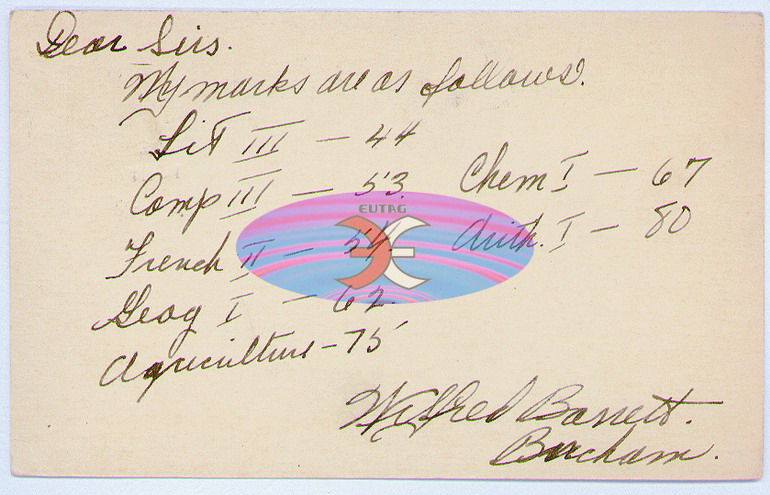 Dear Sirs.
My marks are as follows.
Lit III — 44
Comp III — 53.
French II — 54
Geog I — 62.
Agriculture — 75
Chem I — 67
Arith. I — 80
EUTAG
Wilfred Barrett.
Bircham.